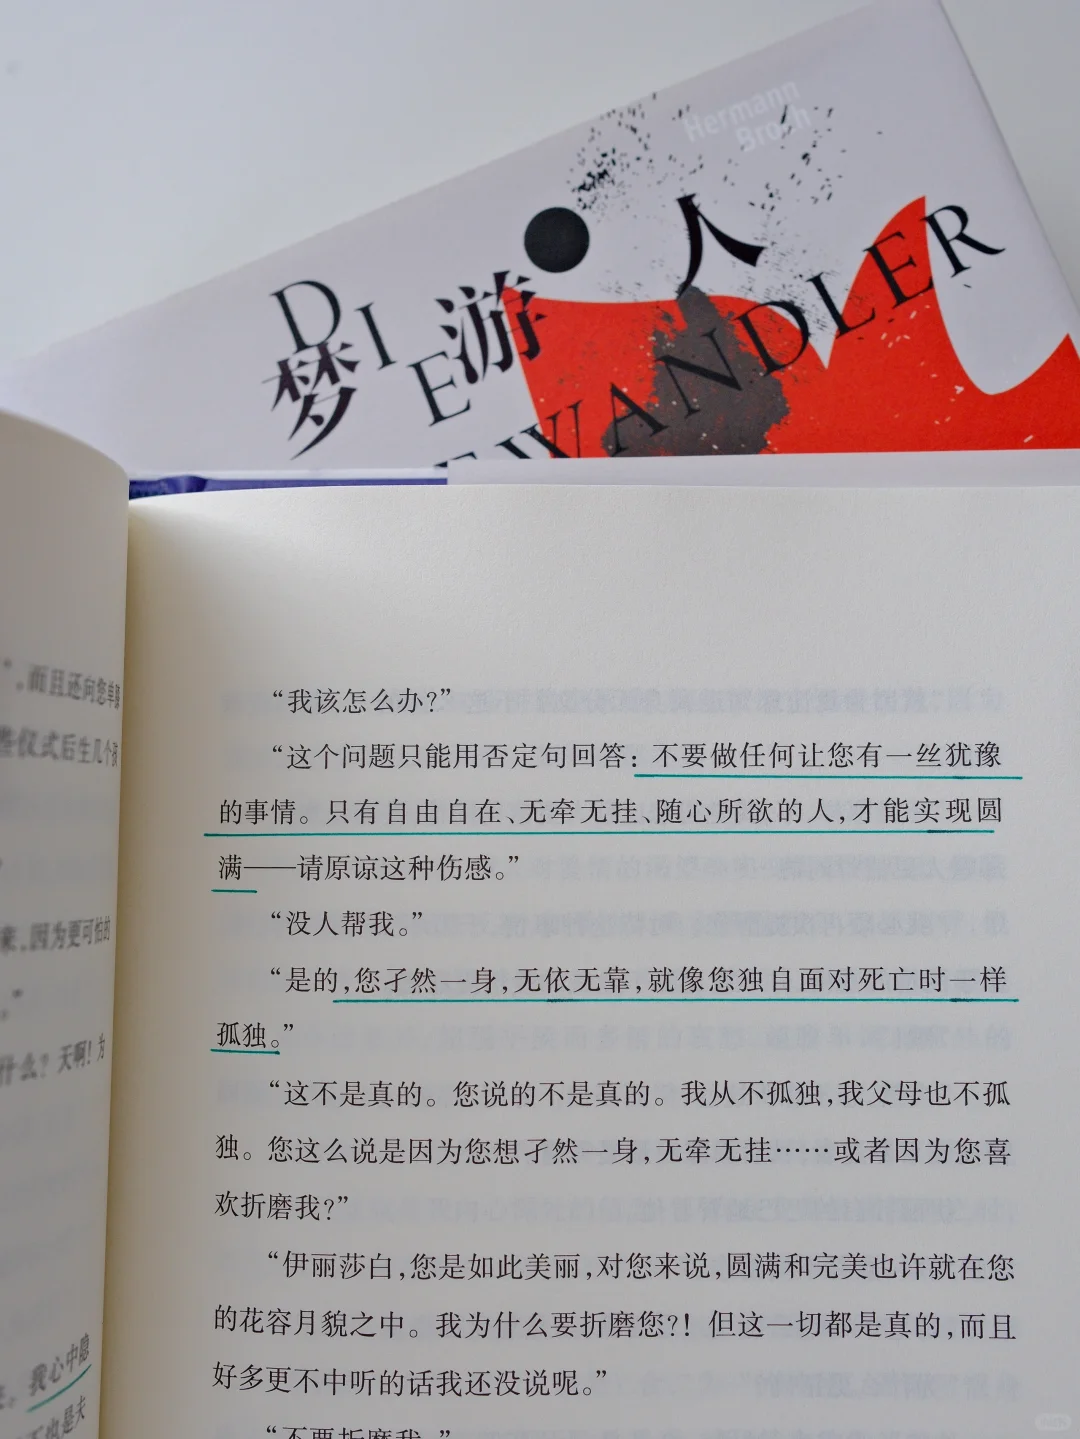 Hermann
Broch
DIE
梦游人
EWANDLER
”。而且还向您单膝
些仪式后生几个孩
来，因为更可怕的
”
什么？天啊！为
我心中隐
“我该怎么办?”
“这个问题只能用否定句回答：不要做任何让您有一丝犹豫
的事情。只有自由自在、无牵无挂、随心所欲的人，才能实现圆
满——请原谅这种伤感。”
“没人帮我。”
“是的，您孑然一身，无依无靠，就像您独自面对死亡时一样
孤独。”
“这不是真的。您说的不是真的。我从不孤独，我父母也不孤
独。您这么说是因为您想孑然一身，无牵无挂……或者因为您喜
欢折磨我?”
“伊丽莎白，您是如此美丽，对您来说，圆满和完美也许就在您
的花容月貌之中。我为什么要折磨您?！但这一切都是真的，而且
好多更不中听的话我还没说呢。”
“不要折磨我。”